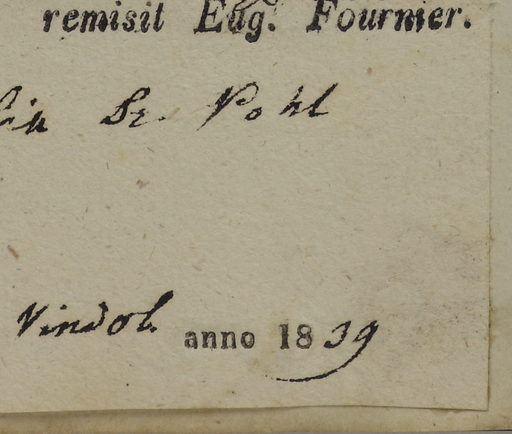 remisit Eug. Fournier.
Dr. Pohl
Vindob. anno 1839